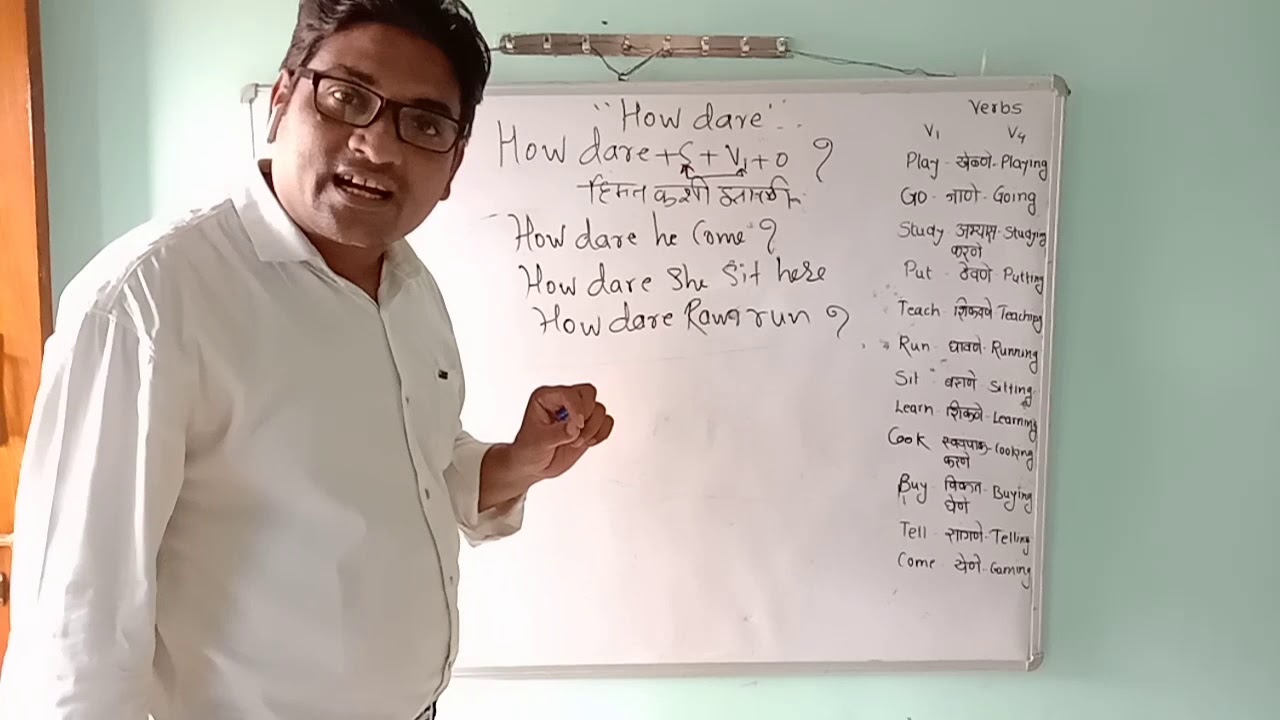 "How dare"
How dare + S + V1 + O ?
हिमत कशी झाली
How dare he Come ?
How dare She Sit here
How dare Rama run ?
Verbs
V1 V4
Play - खेळणे - Playing
Go - जाणे - Going
Study अभ्यास - Studying
करणे
Put - ठेवणे Putting
Teach - शिकवणे - Teaching
Run - धावणे - Running
Sit - बसणे Sitting
Learn - शिकणे - Learning
Cook स्वयपाक - Cooking
करणे
Buy - विकत - Buying
घेणे
Tell - सागणे - Telling
Come - येणे -